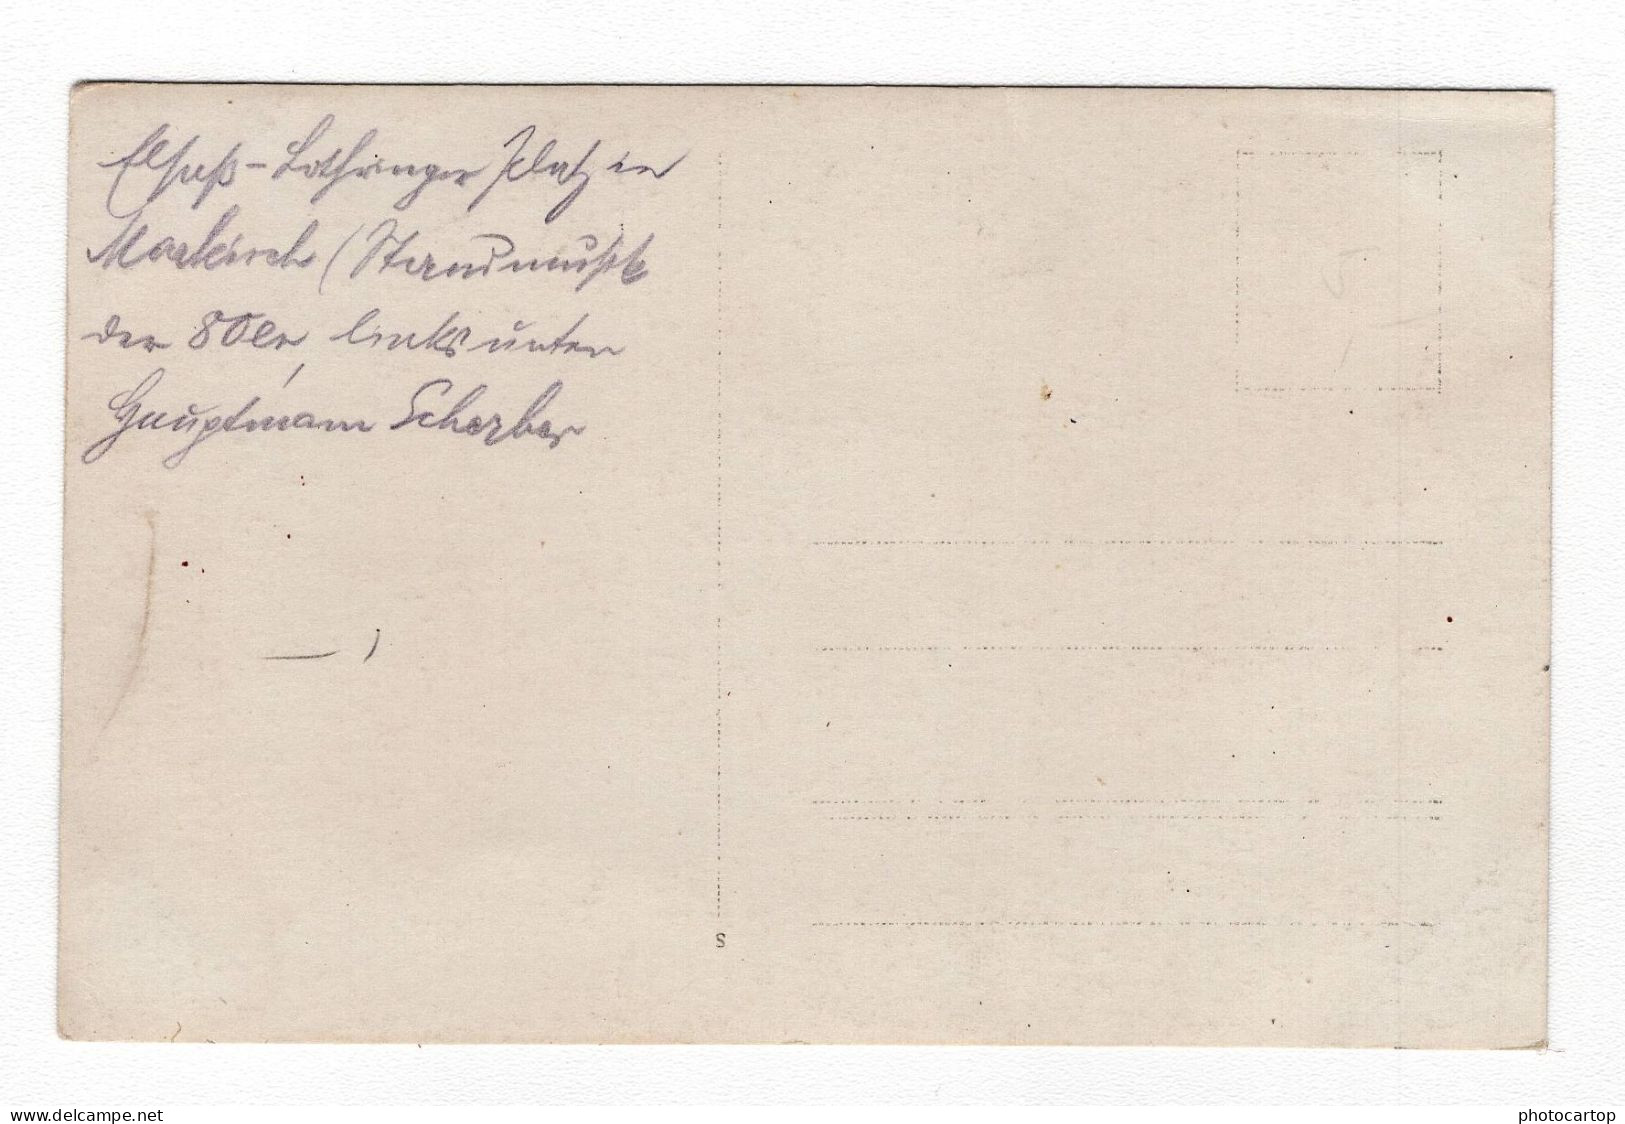 Elsaß-Lothringer Platz in
Markirch (Standmusik
der 80er, links unten
Hauptmann Scherber
S
www.delcampe.net
photocartop